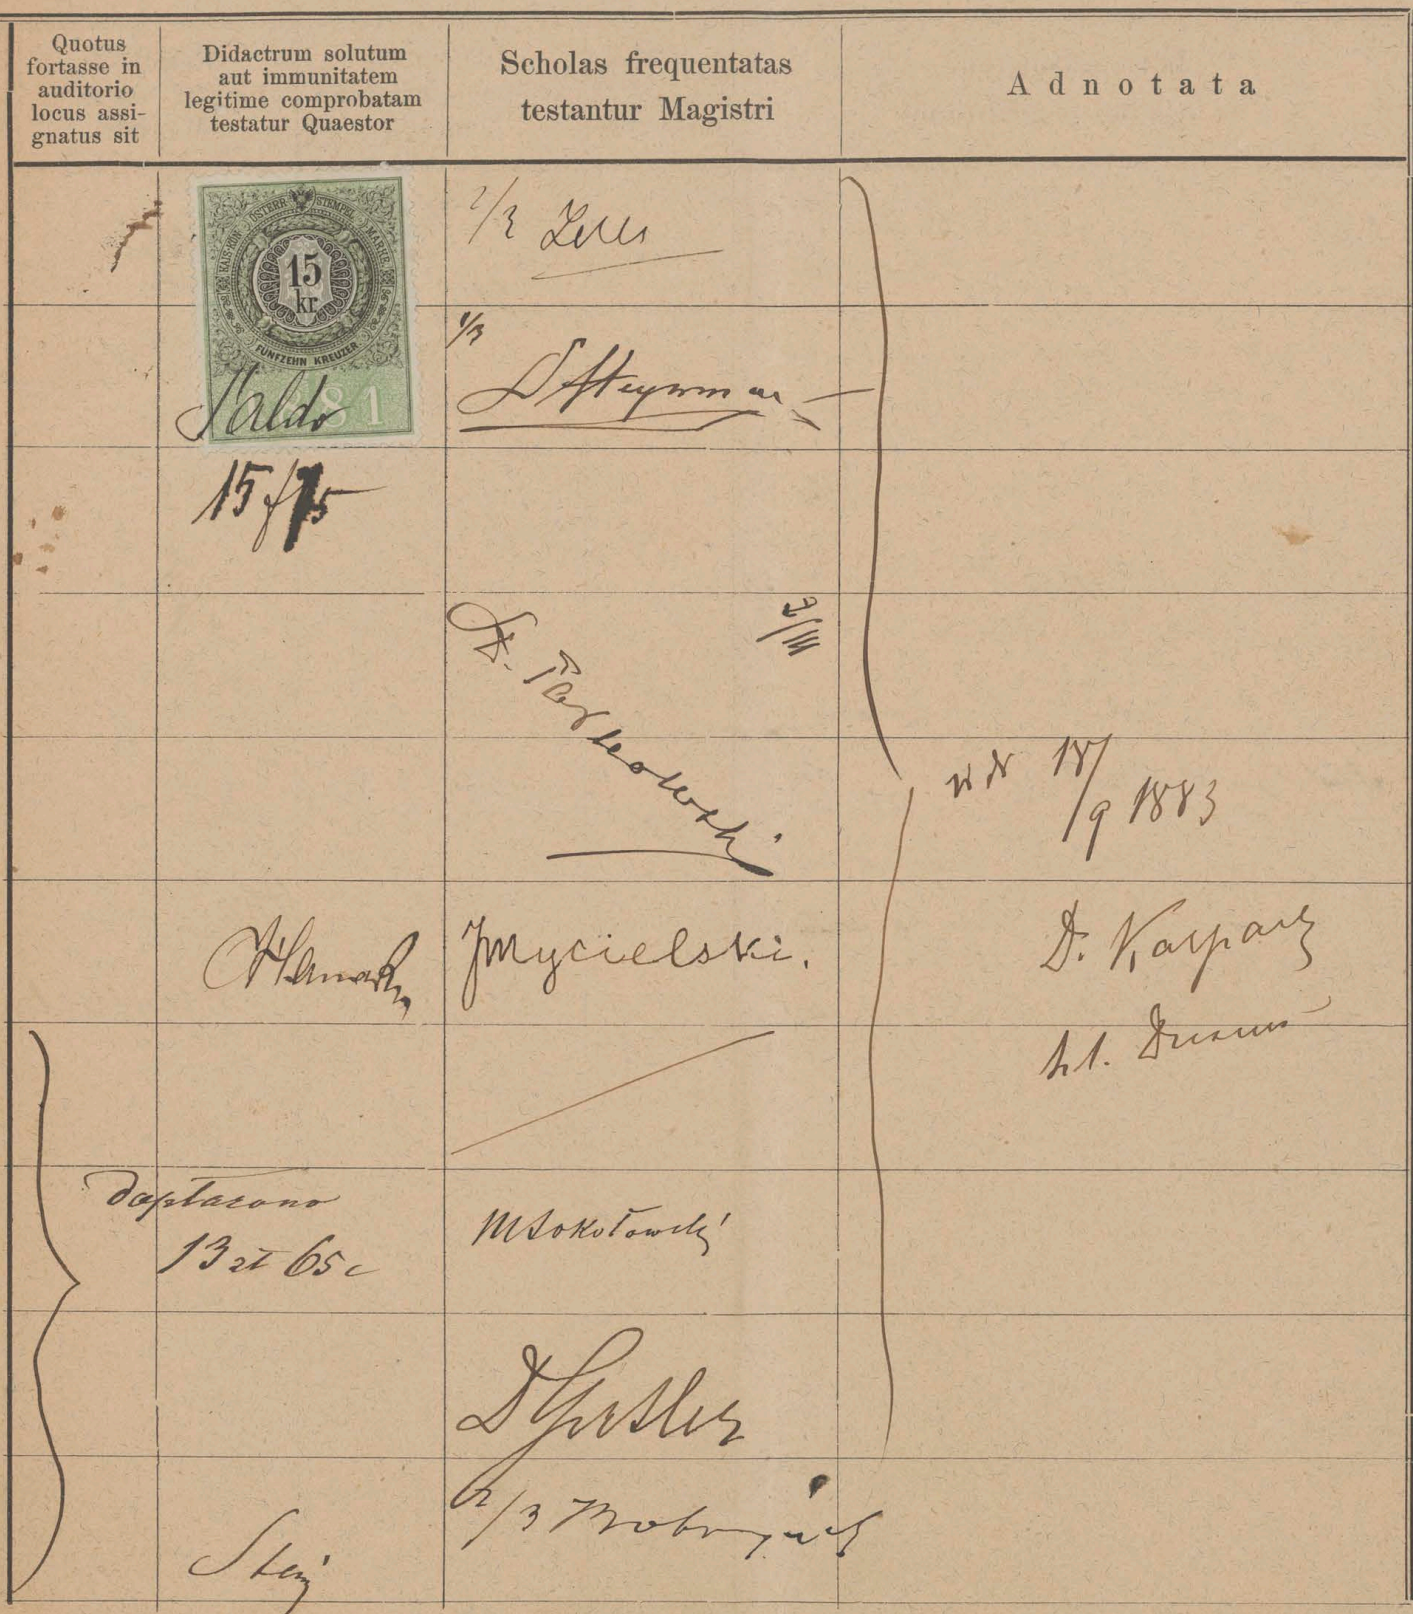 Quotus
fortasse in
auditorio
locus assi-
gnatus sit
Didactrum solutum
aut immunitatem
legitime comprobatam
testatur Quaestor
Scholas frequentatas
testantur Magistri
Adnotata
KAIS. KÖN. ÖSTERR. STEMPEL MARKE
15
kr.
FÜNFZEHN KREUZER
1881
Saldo
15 f 75
1/3
1/3
3/III
Dr.
18/9 1883
JMycielski.
D. Kasparek
dopłacono
13 zł 65 c
MSokołowski
2/3 Bobrzyński